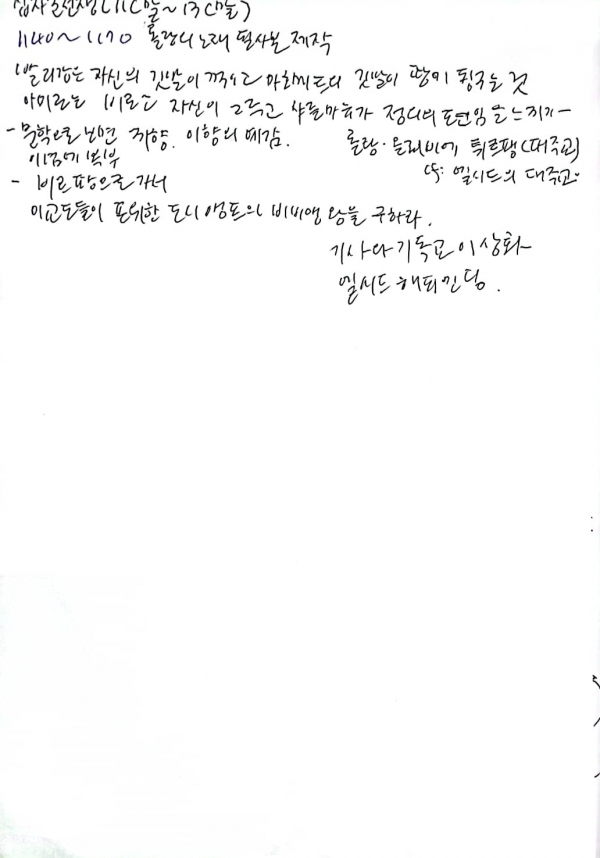 십자군전쟁(11C말~13C말)
1140~1170 롤랑의 노래 필사본 제작
발리강은 자신의 깃발이 꺾이고 마호메트의 깃발이 땅에 뒹구는 것
아미르는 비로소 자신이 그르고 샤를마뉴가 정의의 표현임을 느끼기-
- 문학으로 보면 지향. 이항의 예감.
롤랑·올리비에 튀르팽(대주교)
cf: 엘시드의 대주교.
- 비르팡으로 가서
이교도들이 포위한 도시 앵프의 비비앵 왕을 구하라.
기사다 기독교 이상화
엘시드 해피엔딩.